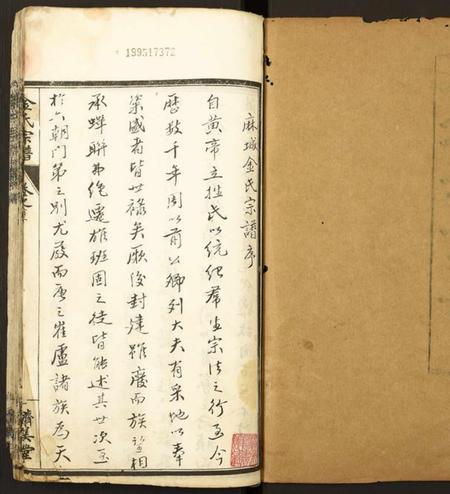 199517372
麻城金氏宗譜序
自黃帝立姓氏以統紀羣生宗法之行至今
歷數千年周以前公卿列大夫有采地以奉
粢盛者皆世祿矣厥後封建雖廢而族望相
承蟬聯弗絕遷雄班固之徒皆能述其世次至
於六朝門第之別尤嚴而唐之崔盧諸族為天
金氏宗譜